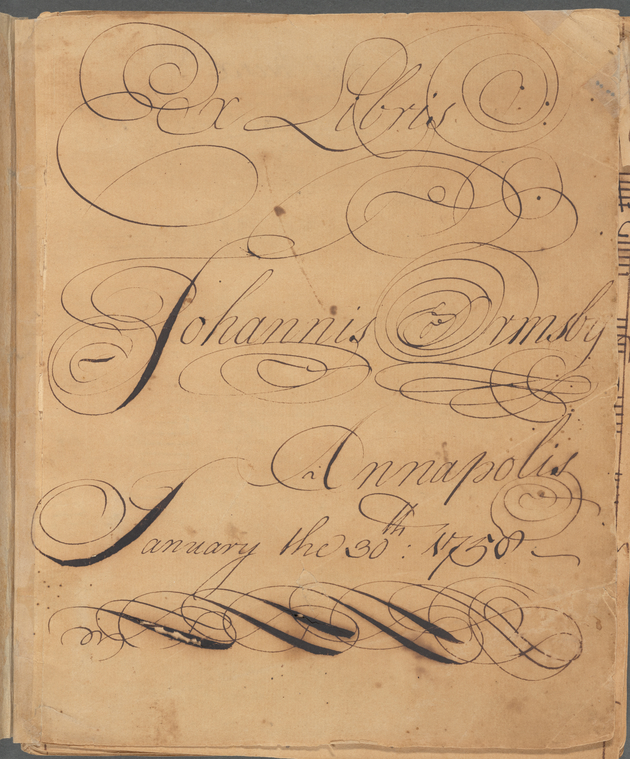 Ex Libris
Johannis Ormsby
Annapolis
January the 30th: 1758